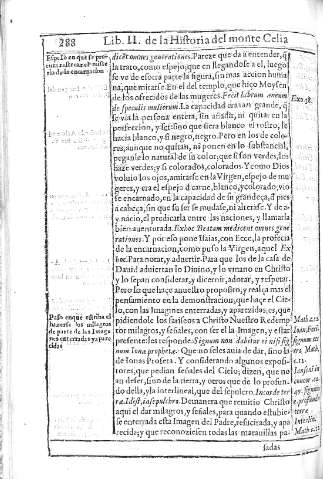 288 Lib. II. de la Historia del monte Celia
Espejo en que se
de la encarnacion
dicet omnes generationes. Pareze que da a entender, q̃
la trato, como espejo, que en llegandose a el, luego
se ve de esotra parte la figura, sin mas accion huma
na, que mirarse. En el del templo, que hiço Moysen,
de los ofrecidos de las mugeres. Fecit labrum æneum
de speculis mulierum. La capacidad era tan grande, q̃
se via la persona entera, sin añadir, ni quitar en la
perfeccion, y assi como que fuera blanco el rostro, se
hacia blanco, y si negro, negro. Pero en los de colo-
res, aunque no quitan, ni ponen en lo substancial,
peganle lo natural de su color; que si son verdes, los
haze verdes; y si colorados, colorados. Y como Dios
voluio los ojos, a mirarse en la Virgen, espejo de mu
geres, y era el espejo de carne, blanco, y colorado, vio
se encarnado, en la capacidad de su grandeça, de pies
a cabeça, sin que su ser se mudase, ni alterase. Y de a-
y nacio, el predicarla entre las naciones, y llamarla
bien auenturada. Ex hoc Beatam me dicent omnes gene
rationes. Y por eso pone Isaias, con Ecce, la profecia
de la encarnacion, como puso la Virgen, aquel Ex
hoc. Para notar, y aduertir. Para que los de la casa de
Dauid aduiertan lo Diuino, y lo vmano en Christo
y lo sepan considerar, y dicernir, adorar, y respetar.
Pero lo que haçe a nuestro proposito, y realça mas el
pensamiento en la demostracion, que haçe el Cie-
lo, con las Imagines enterradas, y aparecidas, es, que
pidiendole los fariseos a Christo Nuestro Redemp
tor milagros, y señales, con ser el la Imagen, y estar
presente: les responde. Signum non dabitur ei nisi sig
num Ionæ prophetæ. Que no se les auia de dar, sino la
de Ionas Profeta. Y considerando algunos exposi-
tores, que pedian señales del Cielo; dizen, que no
an de ser, sino de la tierra, y otros que de lo profun
do della, y la interlineal, que del sepulcro. In corde ter
ræ. Idest, in sepulchro. De manera que remitio Christo
aqui el dar milagros, y señales, para quando estubie-
se enterrada esta Imagen del Padre, resucitada, y apa
recida; y que reconociesen todas las marauillas pa-
sadas
Exo. 38.
Paso en que estriba el
hacerse los milagros
de parte de las Imagi
nes enterradas y apare
cidas
Math. 12.